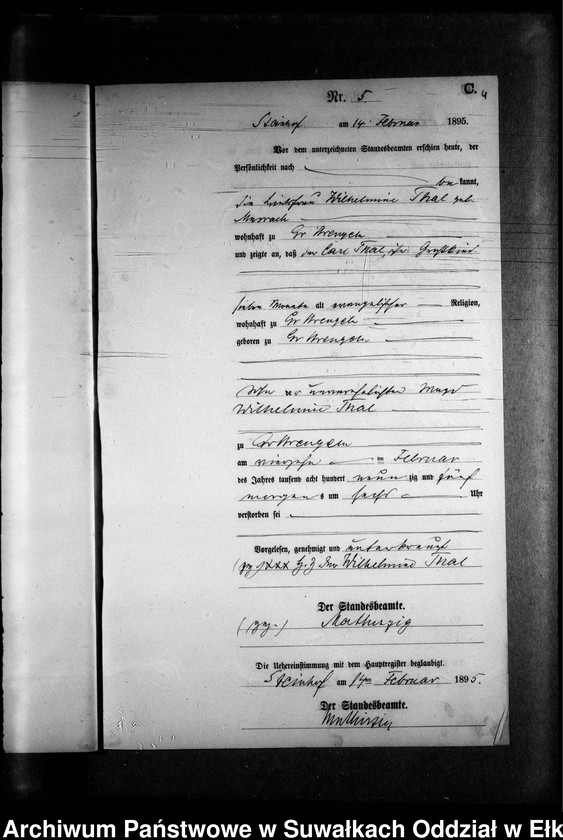 C.
4
Nr. 5
Steinhof am 14. Februar 1895.
Vor dem unterzeichneten Standesbeamten erschien heute, der
Persönlichkeit nach
be kannt,
die Wilhelmine Thal geb.
wohnhaft zu Gr
und zeigte an, daß der Carl Thal, ihr Großkind
sieben Monate alt evangelischer Religion,
wohnhaft zu Gr
geboren zu Gr
Sohn der unverehelichten Magd
Wilhelmine Thal
zu Gr
am vierzehn im Februar
des Jahres tausend acht hundert neun zig und fünf
morgen s um sechs Uhr
verstorben sei
Vorgelesen, genehmigt und unterkreuzt
(gez) XXX der Wilhelmine Thal
Der Standesbeamte.
(gez.)
Die Uebereinstimmung mit dem Hauptregister beglaubigt.
Steinhof am 14ten Februar 1895.
Der Standesbeamte.
Archiwum Państwowe w Suwałkach Oddział w Ełk